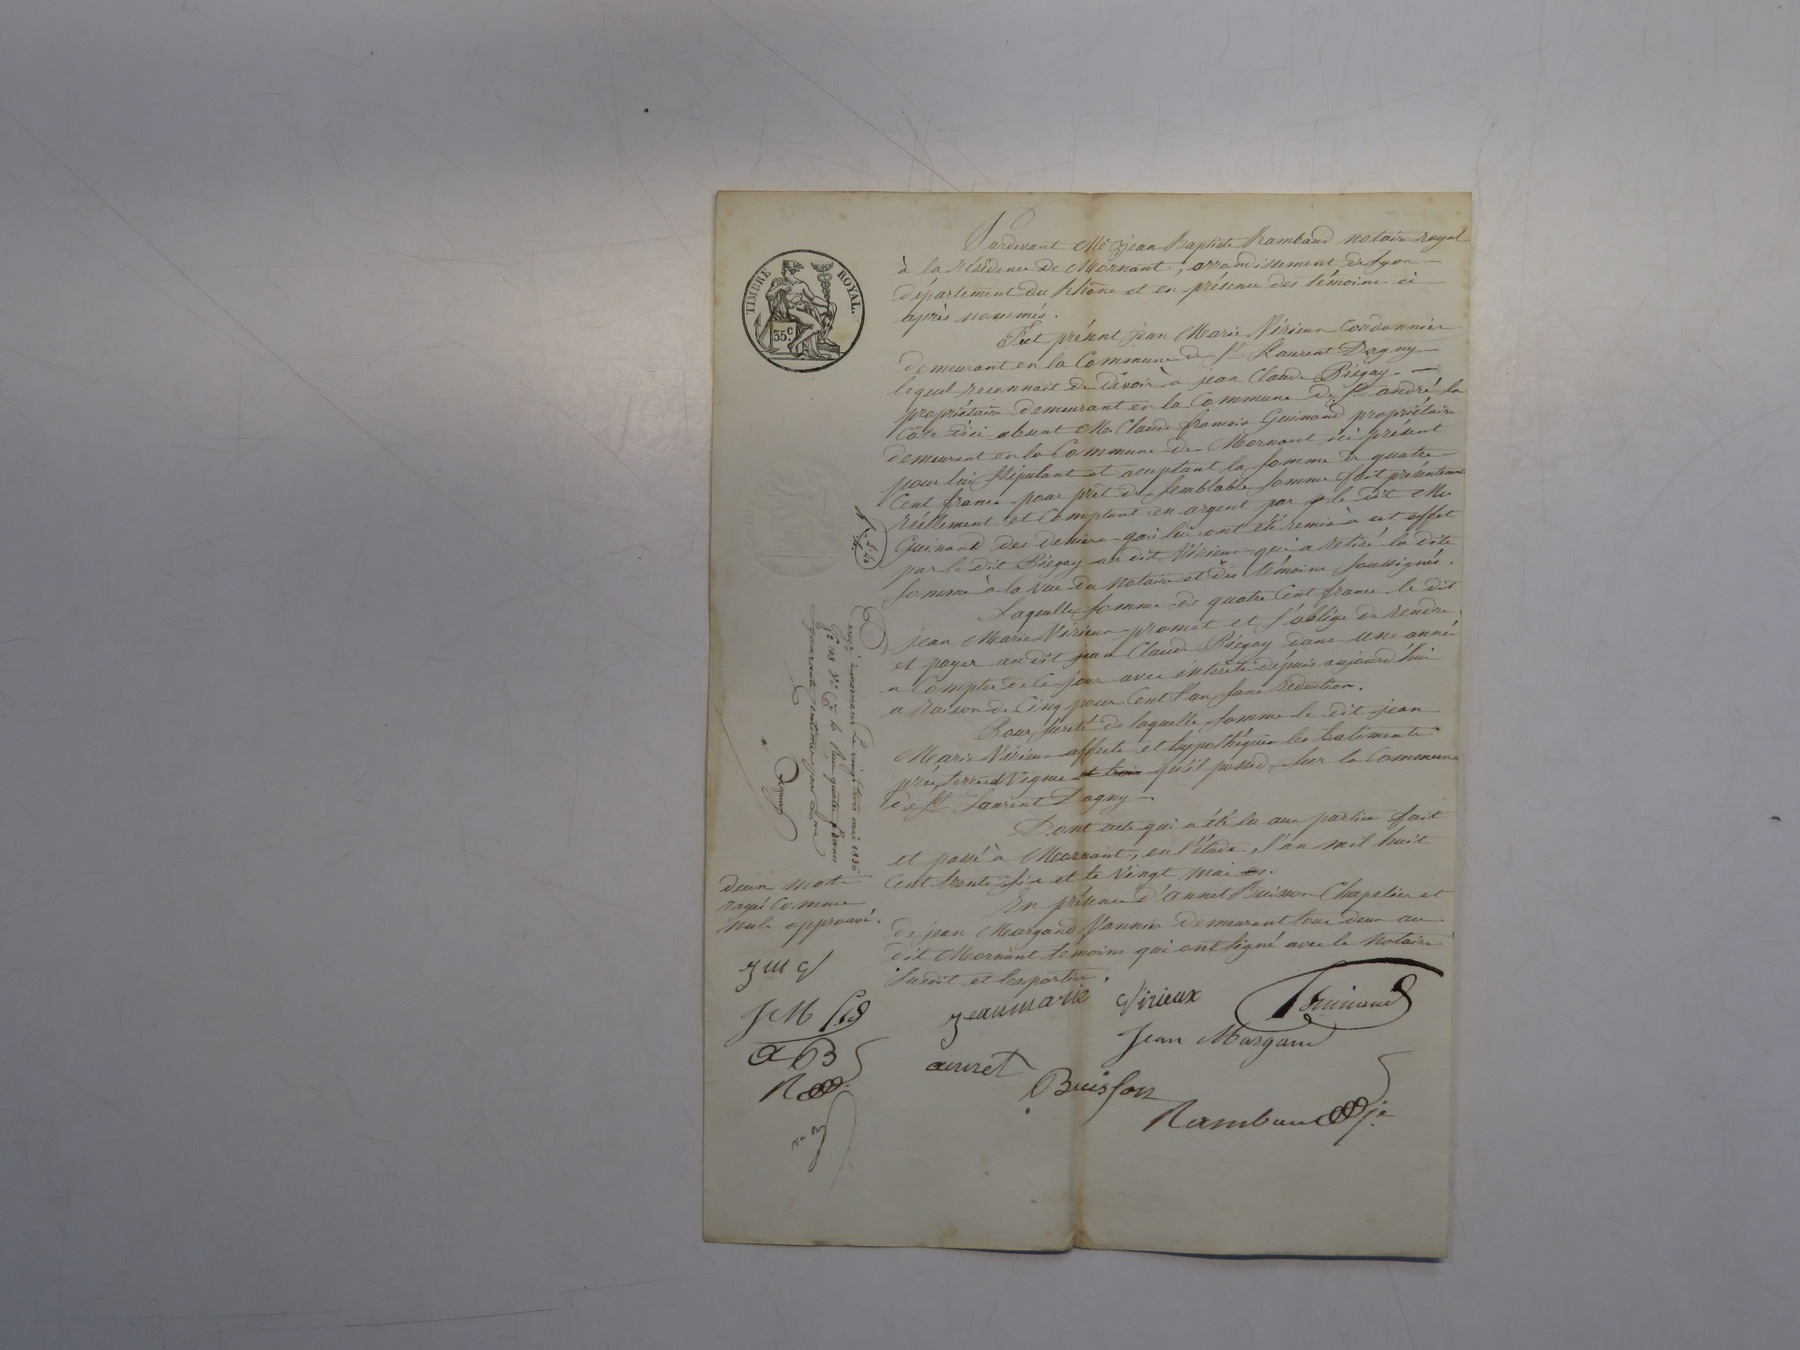 TIMBRE ROYAL.
35.c
Pardevant Me jean Baptiste Rambaud notaire royal
à la résidence de Mornant, arrondissement de Lyon
département du Rhône et en présence des témoins ci
après nommés.
Fut présent jean Marie Virieux Cordonnier
demeurant en la Commune de St Laurent Dagny
lequel reconnait devoir à jean Claude Piégay
propriétaire demeurant en la Commune de St andré la
Côte d'ici absent Me Claude françois Guinand propriétaire
demeurant en la Commune de Mornant ici présent
pour lui stipulant et acceptant la somme de quatre
Cent francs pour prêt de semblable somme fait présentement
réellement et Comptant en argent par le dit Me
Guinand des deniers qui lui ont été remis à cet effet
par le dit Piégay au dit Virieux qui a retiré la dite
somme à la vue du notaire et des témoins soussignés.
Laquelle somme de quatre Cent francs le dit
jean Marie Virieux promet et s'oblige de rendre
et payer au dit jean Claude Piégay dans une année
a Compter de Ce jour avec intérêts depuis aujourd'hui
a raison de Cinq pour Cent l'an sans réduction.
Pour sureté de laquelle somme le dit jean
Marie Virieux affecte et hypothéque les batiments
prés, terre et Vigne et bois qu'il possede sur la Commune
de St Laurent Dagny.
Dont acte qui a été lu aux parties fait
et passé à Mornant, en l'étude, l'an mil huit
Cent trente six et le vingt mai
En présence d'annet Buisson Chapelier et
de jean Margand Vannier demeurant tous deux au
dit Mornant témoins qui ont signé avec le Notaire
susdit et les parties.
jeanmarie Virieux Guinand
Jean Margand
annet Buisson
Rambaud
mornant Le vingt trois mai 1836
deux mots
rayés Comme
nuls approuvé.
J M
A B
R